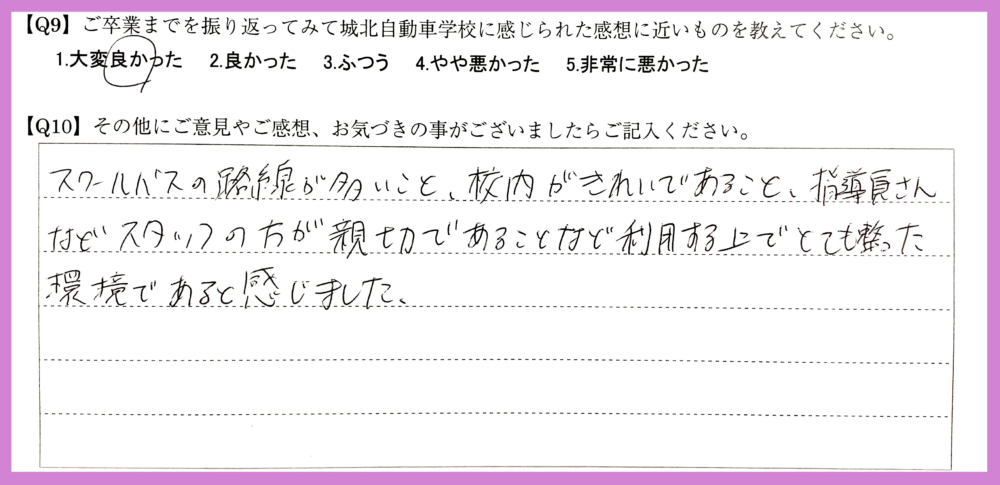 【Q9】ご卒業までを振り返ってみて城北自動車学校に感じられた感想に近いものを教えてください。
1.大変良かった 2.良かった 3.ふつう 4.やや悪かった 5.非常に悪かった
【Q10】その他にご意見やご感想、お気づきの事がございましたらご記入ください。
スクールバスの路線が多いこと、校内がきれいであること、指導員さん
などスタッフの方が親切であることなど利用する上でとても整った
環境であると感じました。